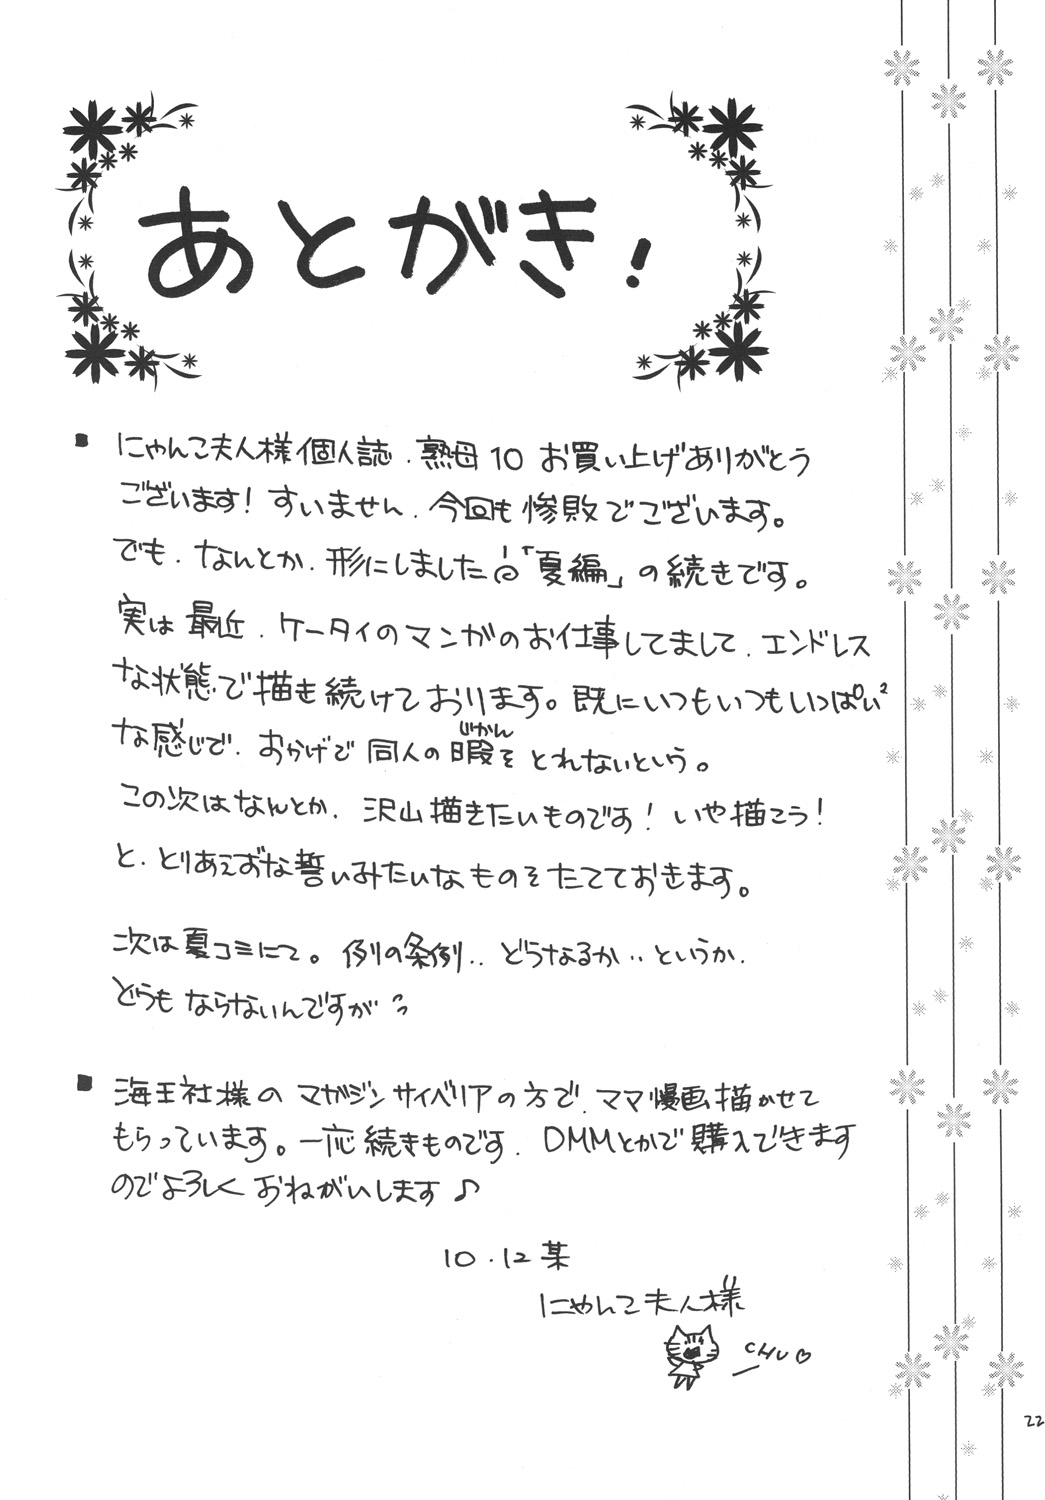 あとがき!
■ にゃんこ夫人様個人誌、熟母10 お買い上げありがとう
ございます! すいません、今回も惨敗でございます。
でも、なんとか、形にしました「夏編」の続きです。
実は最近、ケータイのマンガのお仕事してまして、エンドレス
な状態で描き続けております。既にいつもいつもいっぱい²
じかん
な感じで、おかげで同人の暇をとれないという。
この次はなんとか、沢山描きたいものです! いや描こう!
と、とりあえずな誓いみたいなものをたてておきます。
次は夏コミにて。例の条例‥どうなるか‥というか、
どうもならないんですが
■ 海王社様のマガジンサイベリアの方で、ママ漫画描かせて
もらっています。一応続きものです、DMMとかで購入できます
のでよろしくおねがいします♪
10.12某
にゃんこ夫人様
CHU♡
22